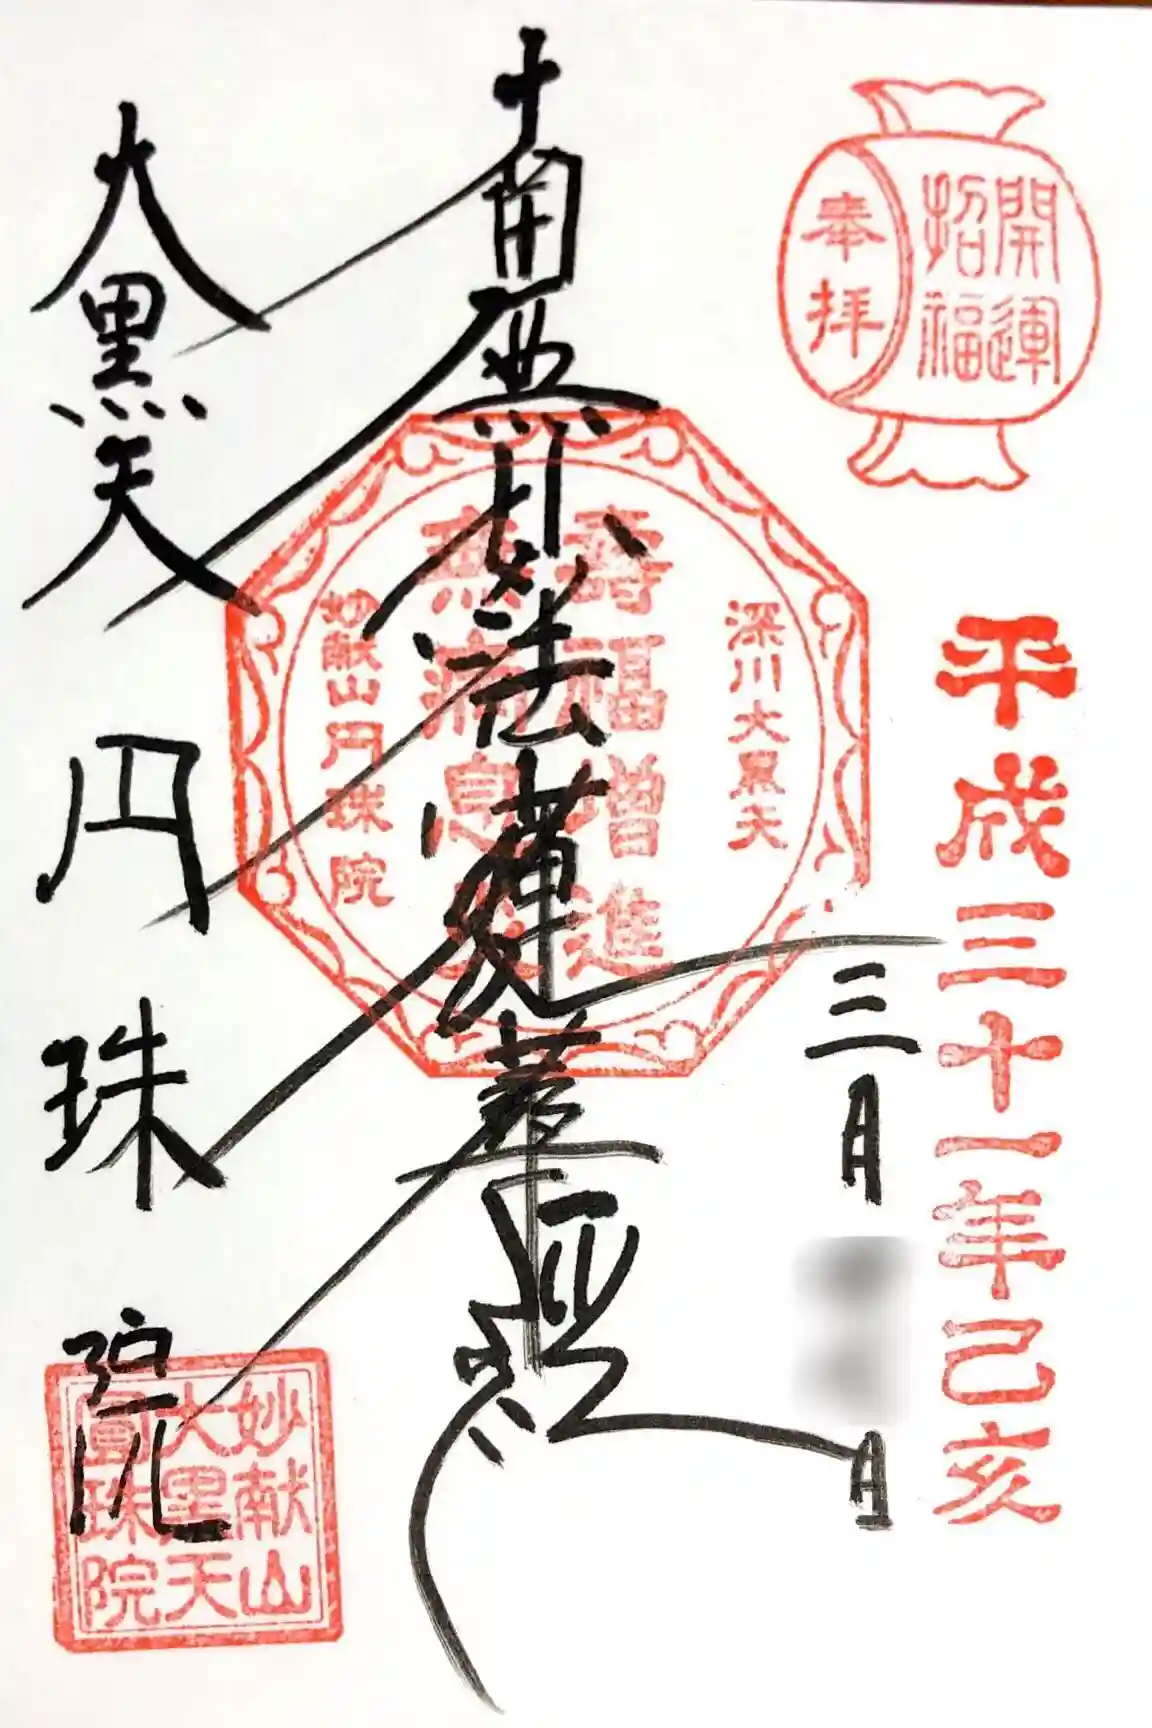 開運
招福
奉拝
平成三十一年己亥
三月
日
深川大黒天
壽福増進
無病息災
妙献山円珠院
南無妙法蓮華経
大黒天
円珠院
妙献山
大黒天
圓珠院